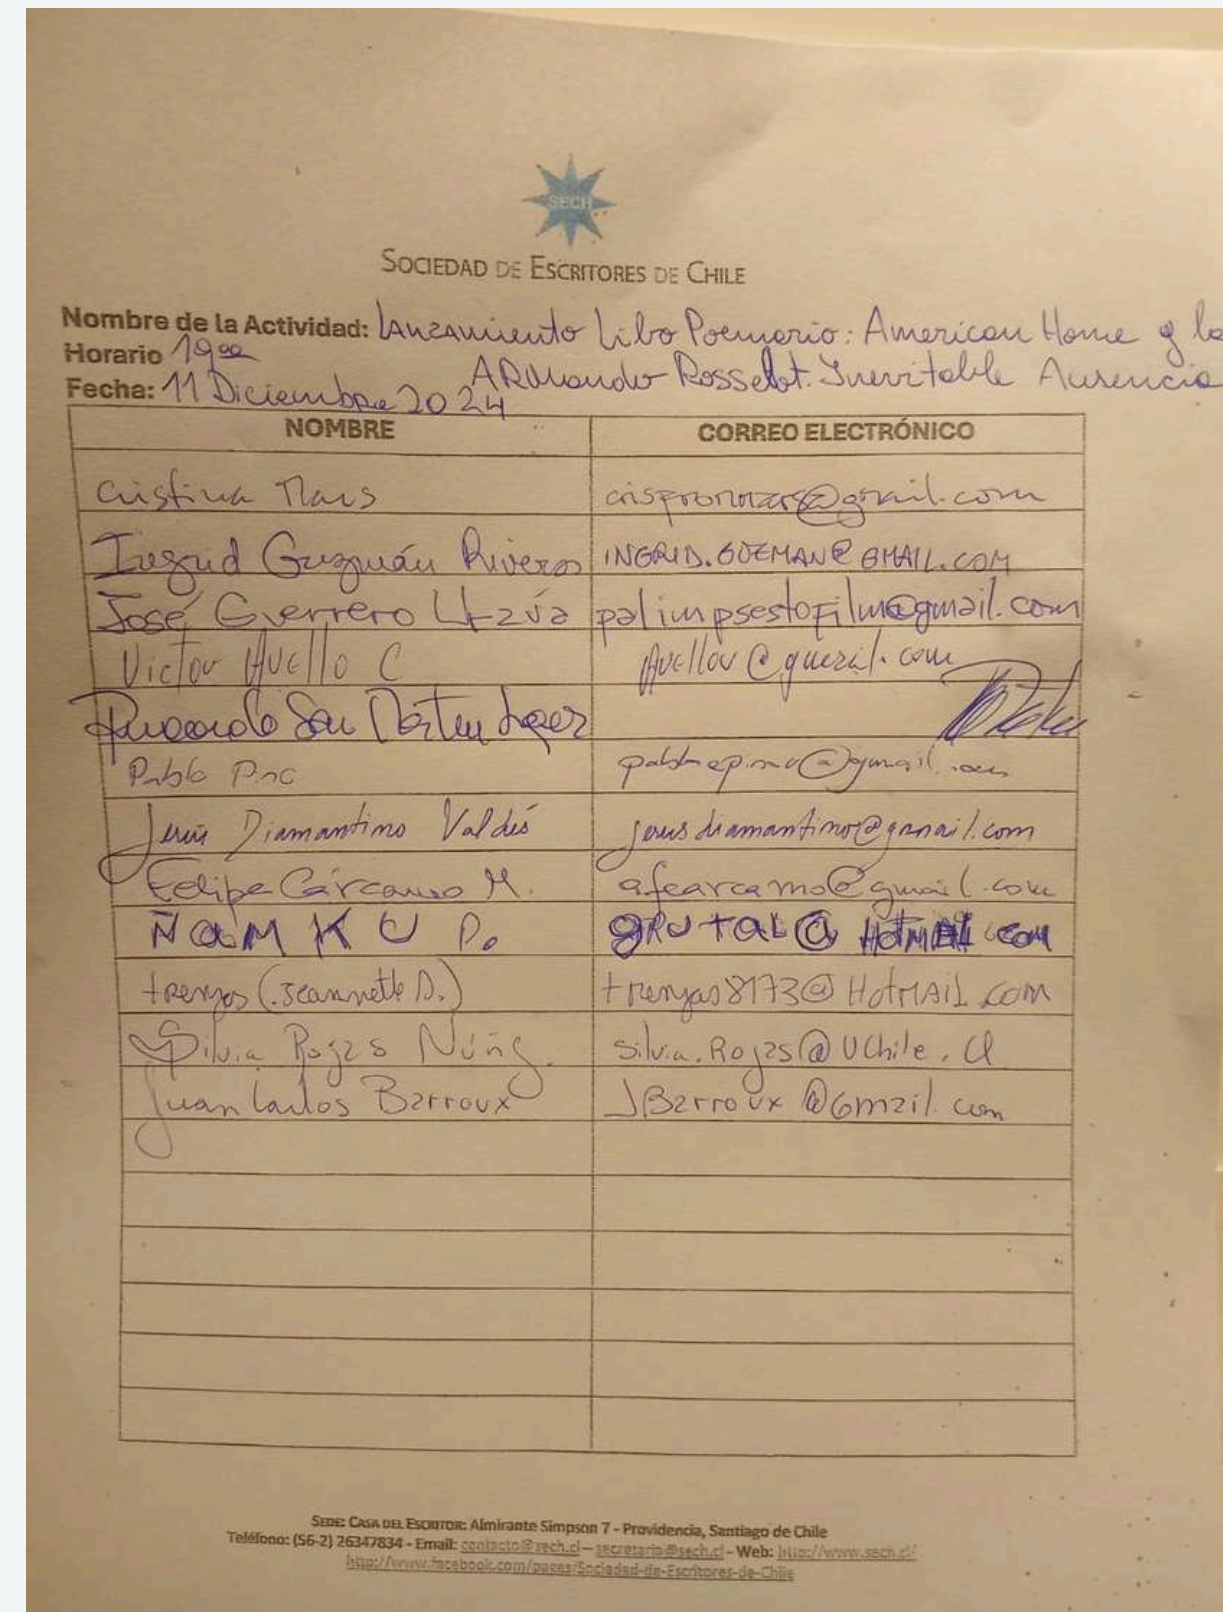 SECH
SOCIEDAD DE ESCRITORES DE CHILE
Nombre de la Actividad: Lanzamiento Libo Poemario: American Home y la
Horario 19ºº
ARMando Rosselot. Inevitable Ausencia
Fecha: 11 Diciembre 2024
NOMBRE CORREO ELECTRÓNICO
Cristina Mars
Ingrid Guzmán Rivero INGRID.GUZMAN@GMAIL.COM
José Guerrero Urzúa palimpsestofilm@gmail.com
Victor Avello C Avellov@gmail.com
San Martín
Pablo Pino
Jesús Diamantino Valdés jesusdiamantino@gmail.com
Felipe Cárcamo M. afcarcamo@gmail.com
ÑaMKU P. gRUtaL@HotMAIL COM
trenzas (Jeannette D.) trenzas8173@HotMAIL.COM
Silvia Rojas Núñ silvia.Rojas@Uchile.cl
Juan Carlos Barroux JBarroux@Gmail.com
SEDE: CASA DEL ESCRITOR: Almirante Simpson 7 - Providencia, Santiago de Chile
Teléfono: (56-2) 26347834 - Email: contacto@sech.cl – secretaria@sech.cl – Web: http://www.sech.cl/
http://www.facebook.com/pages/Sociedad-de-Escritores-de-Chile